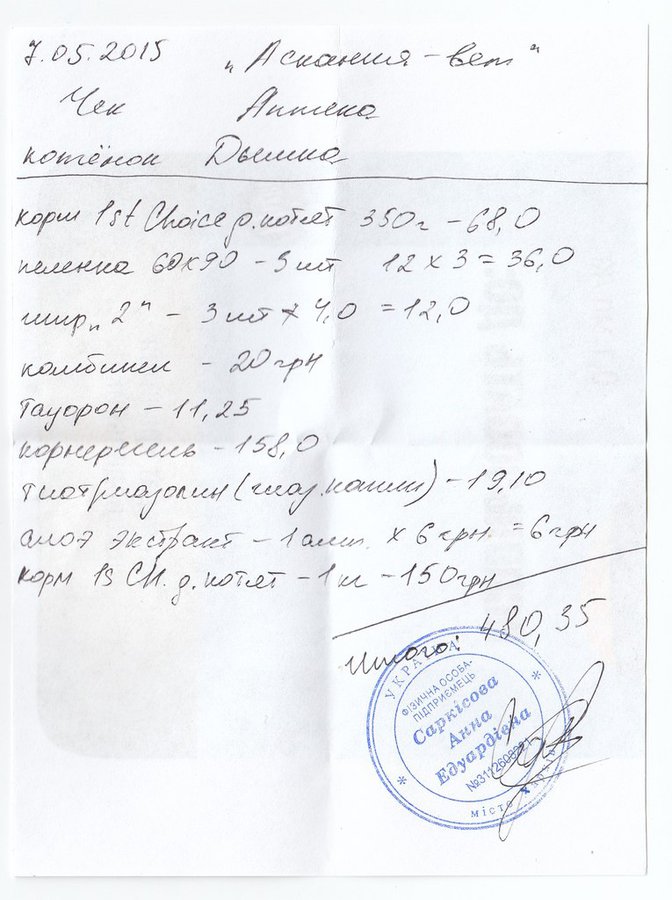 7.05.2015 „Аскания-вет"
Чек Аптека
котёнок Дымка
корм 1st Choice д.котят 350г – 68,0
пеленка 60х90 – 3 шт 12 х 3 = 36,0
шпр „2" – 3 шт х 4,0 = 12,0
комбинил – 20 грн
Тауфон – 11,25
корнерегель – 158,0
тиотриазолин (глаз.капли) – 19,10
алоэ экстракт – 1 амп. х 6 грн. = 6 грн
корм 1s CH. д. котят – 1 кг – 150 грн
Итого: 480,35
УКРАЇНА
ФІЗИЧНА ОСОБА-
ПІДПРИЄМЕЦЬ
Саркісова
Анна
Едуардівна
місто Харків